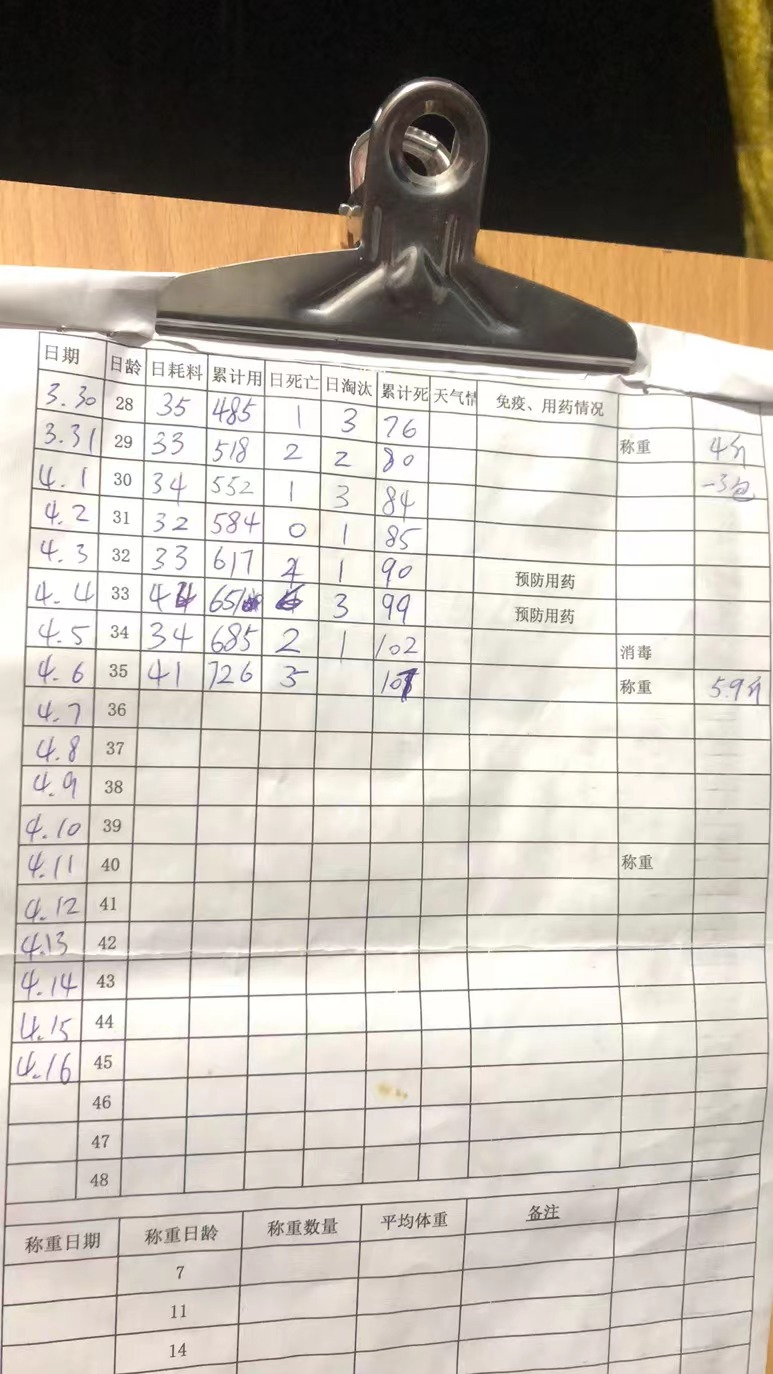 日期 日龄 日耗料 累计用 日死亡 日淘汰 累计死 天气情 免疫、用药情况
3.30 28 35 485 1 3 76
3.31 29 33 518 2 2 80 称重 4斤
4.1 30 34 552 1 3 84 -3包
4.2 31 32 584 0 1 85
4.3 32 33 617 1 90 预防用药
4.4 33 651 3 99 预防用药
4.5 34 34 685 2 1 102 消毒
4.6 35 41 726 3 称重 5.9斤
4.7 36
4.8 37
4.9 38
4.10 39
4.11 40 称重
4.12 41
4.13 42
4.14 43
4.15 44
4.16 45
46
47
48
称重日期 称重日龄 称重数量 平均体重 备注
7
11
14